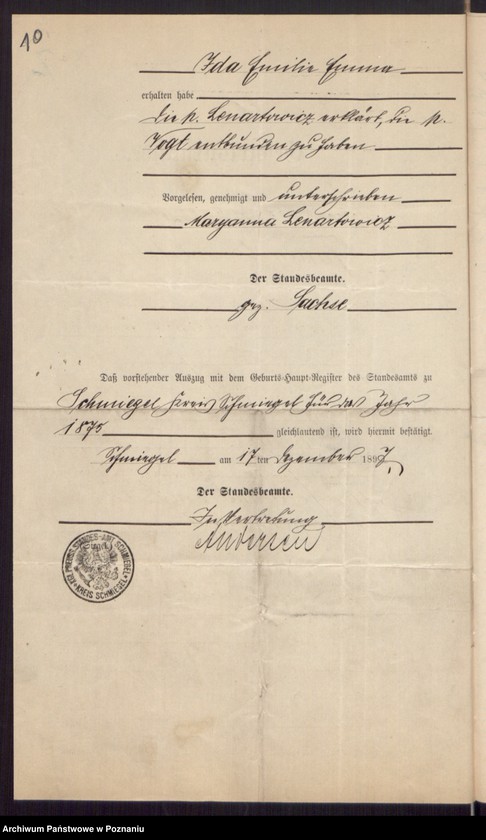 10
Ida Emilie Emma
erhalten habe
Die p. Lenartowicz erklärt, die p.
Vogt entbunden zu haben
Vorgelesen, genehmigt und unterschrieben
Maryanna Lenartowicz
Der Standesbeamte.
gez. Sachse
Daß vorstehender Auszug mit dem Geburts-Haupt-Register des Standesamts zu
Schmiegel Kreis Schmiegel für das Jahr
1875 gleichlautend ist, wird hiermit bestätigt.
Schmiegel am 17ten Dezember 1897,
Der Standesbeamte.
In Vertretung
Andersen
KGL. PREUSS. STANDES-AMT SCHMIEGEL
KREIS SCHMIEGEL
Archiwum Państwowe w Poznaniu